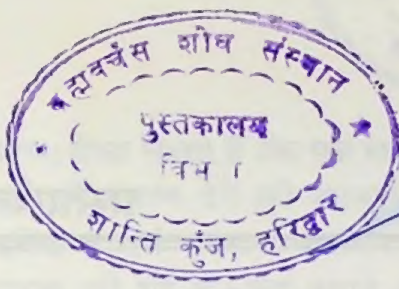 ब्रह्मवर्चस शोध संस्थान
पुस्तकालय
शान्ति कुंज, हरिद्वार